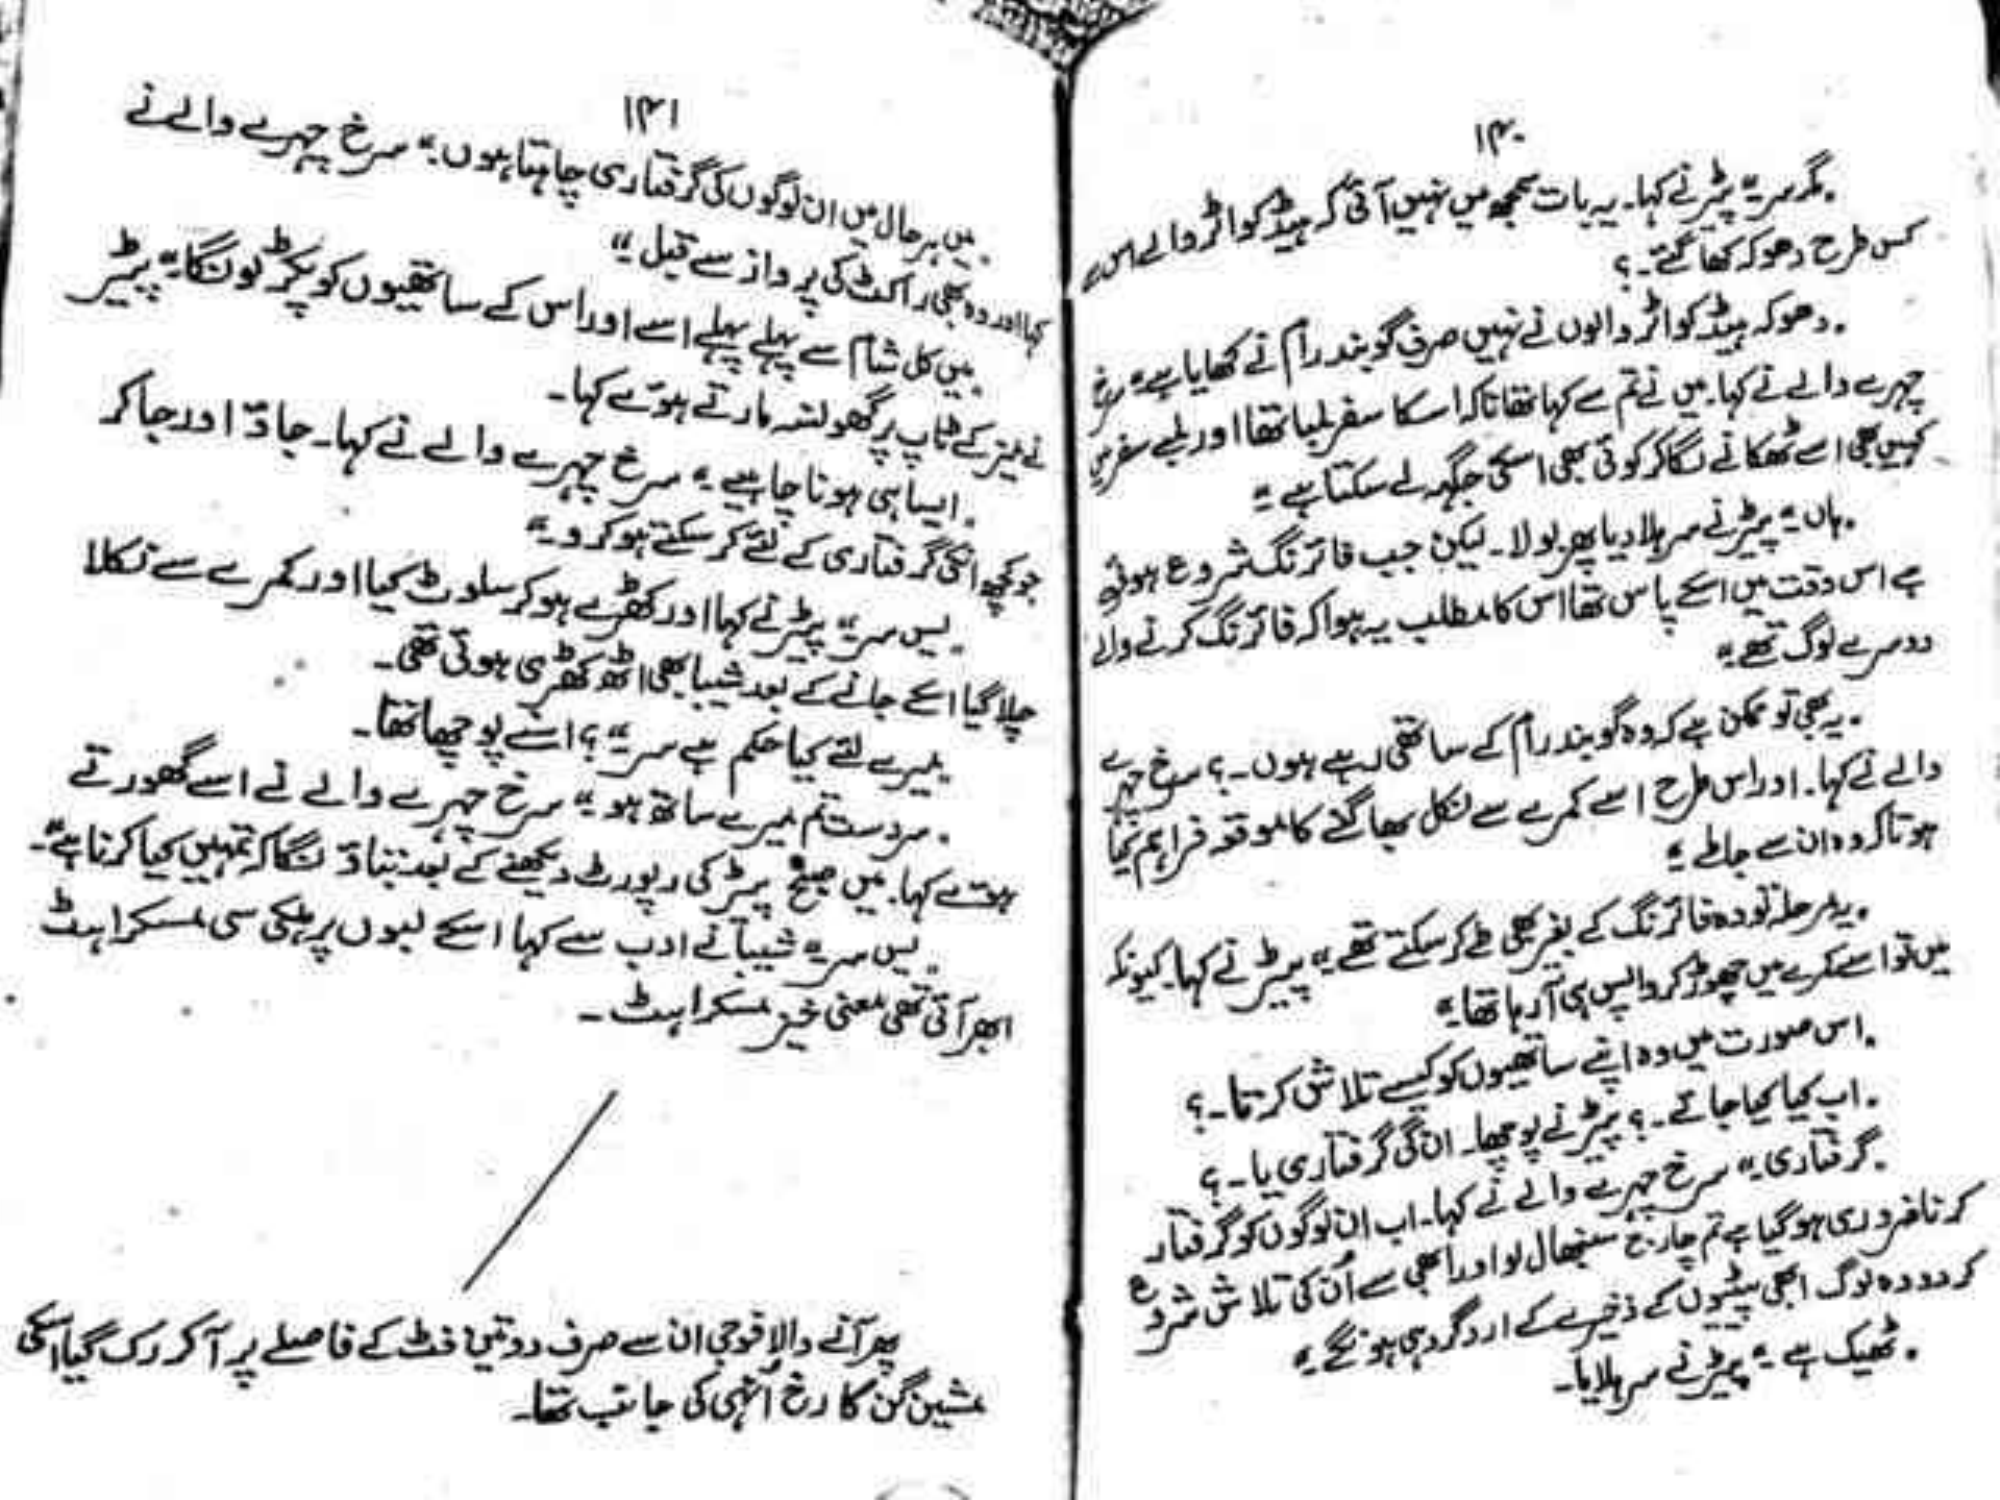 ۱۴۰
"مگر سر" پیٹر نے کہا۔ یہ بات سمجھ میں نہیں آئی کہ ہیڈ کواٹر والے اس سے
کس طرح دھوکہ کھا گئے۔؟
"دھوکہ ہیڈ کواٹر والوں نے نہیں صرف گوبند رام نے کھایا ہے" سرخ
چہرے والے نے کہا۔ میں نے تم سے کہا تھا نا کہ اسکا سفر لمبا تھا اور لمبے سفر میں
کہیں بھی اسے ٹھکانے لگا کر کوئی بھی اسکی جگہ لے سکتا ہے"
"ہاں" پیٹر نے سر ہلا دیا پھر بولا۔ لیکن جب فائرنگ شروع ہوئی
ہے اس وقت میں اسکے پاس تھا اس کا مطلب یہ ہوا کہ فائرنگ کرنے والے
دوسرے لوگ تھے"
"یہ بھی تو ممکن ہے کہ وہ گوبند رام کے ساتھی رہے ہوں۔؟ سرخ چہرے
والے نے کہا۔ اور اس طرح اسے کمرے سے نکل بھاگنے کا موقعہ فراہم کیا
ہو تاکہ وہ ان سے جا ملے"
"یہ مرحلہ تو وہ فائرنگ کے بغیر بھی طے کر سکتے تھے" پیٹر نے کہا۔ کیونکہ
میں تو اسے کمرے میں چھوڑ کر واپس ہی آ رہا تھا"
"اس صورت میں وہ اپنے ساتھیوں کو کیسے تلاش کرتا۔؟
"اب کیا کیا جائے۔؟ پیٹر نے پوچھا۔ ان کی گرفتاری یا۔؟
"گرفتاری" سرخ چہرے والے نے کہا۔ اب ان لوگوں کو گرفتار
کرنا ضروری ہو گیا ہے تم چارج سنبھال لو اور ابھی سے اُن کی تلاش شروع
کر دو وہ لوگ ابھی پیٹیوں کے ذخیرے کے ارد گرد ہی ہونگے"
"ٹھیک ہے" پیٹر نے سر ہلایا۔
۱۴۱
"میں ہر حال میں ان لوگوں کی گرفتاری چاہتا ہوں" سرخ چہرے والے نے
کہا اور وہ بھی راکٹ کی پرواز سے قبل"
"میں کل شام سے پہلے پہلے اسے اور اس کے ساتھیوں کو پکڑ لونگا" پیٹر
نے میز کے ٹاپ پر گھونسہ مارتے ہوئے کہا۔
"ایسا ہی ہونا چاہیے" سرخ چہرے والے نے کہا۔ جاؤ اور جا کر
جو کچھ انکی گرفتاری کے لئے کر سکتے ہو کرو"
"یس سر" پیٹر نے کہا اور کھڑے ہو کر سلوٹ کیا اور کمرے سے نکلا
چلا گیا اسکے جانے کے بعد شیبا بھی اٹھ کھڑی ہوئی تھی۔
"میرے لئے کیا حکم ہے سر"؟ اسنے پوچھا تھا۔
"سردست تم میرے ساتھ ہو" سرخ چہرے والے نے اسے گھورتے
ہوئے کہا۔ میں صبح پیٹر کی رپورٹ دیکھنے کے بعد بتاؤ لنگا کہ تمہیں کیا کرنا ہے"۔
"یس سر" شیبا نے ادب سے کہا اسکے لبوں پر ہلکی سی مسکراہٹ
ابھر آئی تھی معنی خیز مسکراہٹ۔
پھر آنے والا فوجی ان سے صرف دو تین فٹ کے فاصلے پر آ کر رک گیا اسکی
مشین گن کا رخ اُنہی کی جانب تھا۔